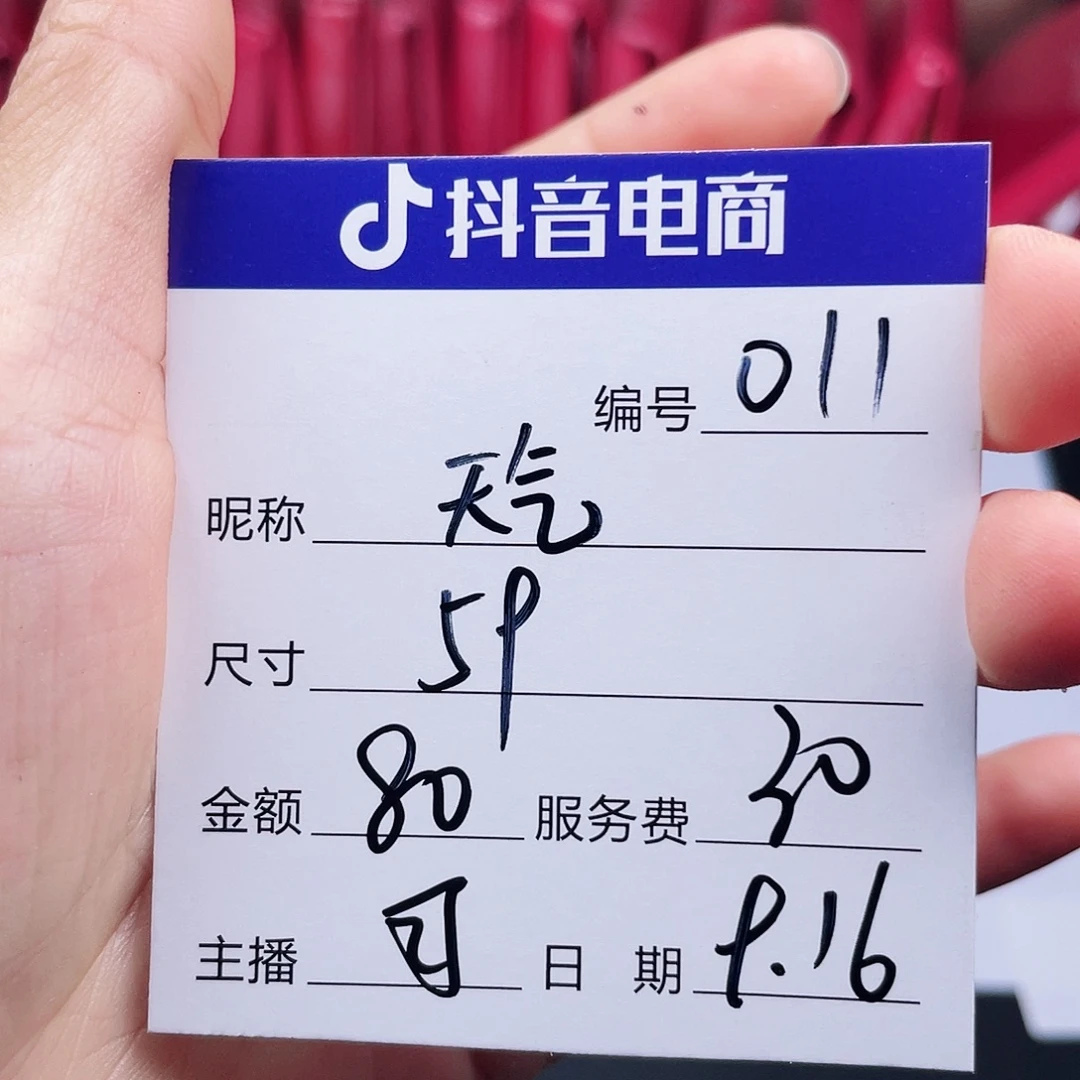 抖音电商
编号 011
昵称 天气
尺寸 59
金额 80 服务费
主播 日期 9.16